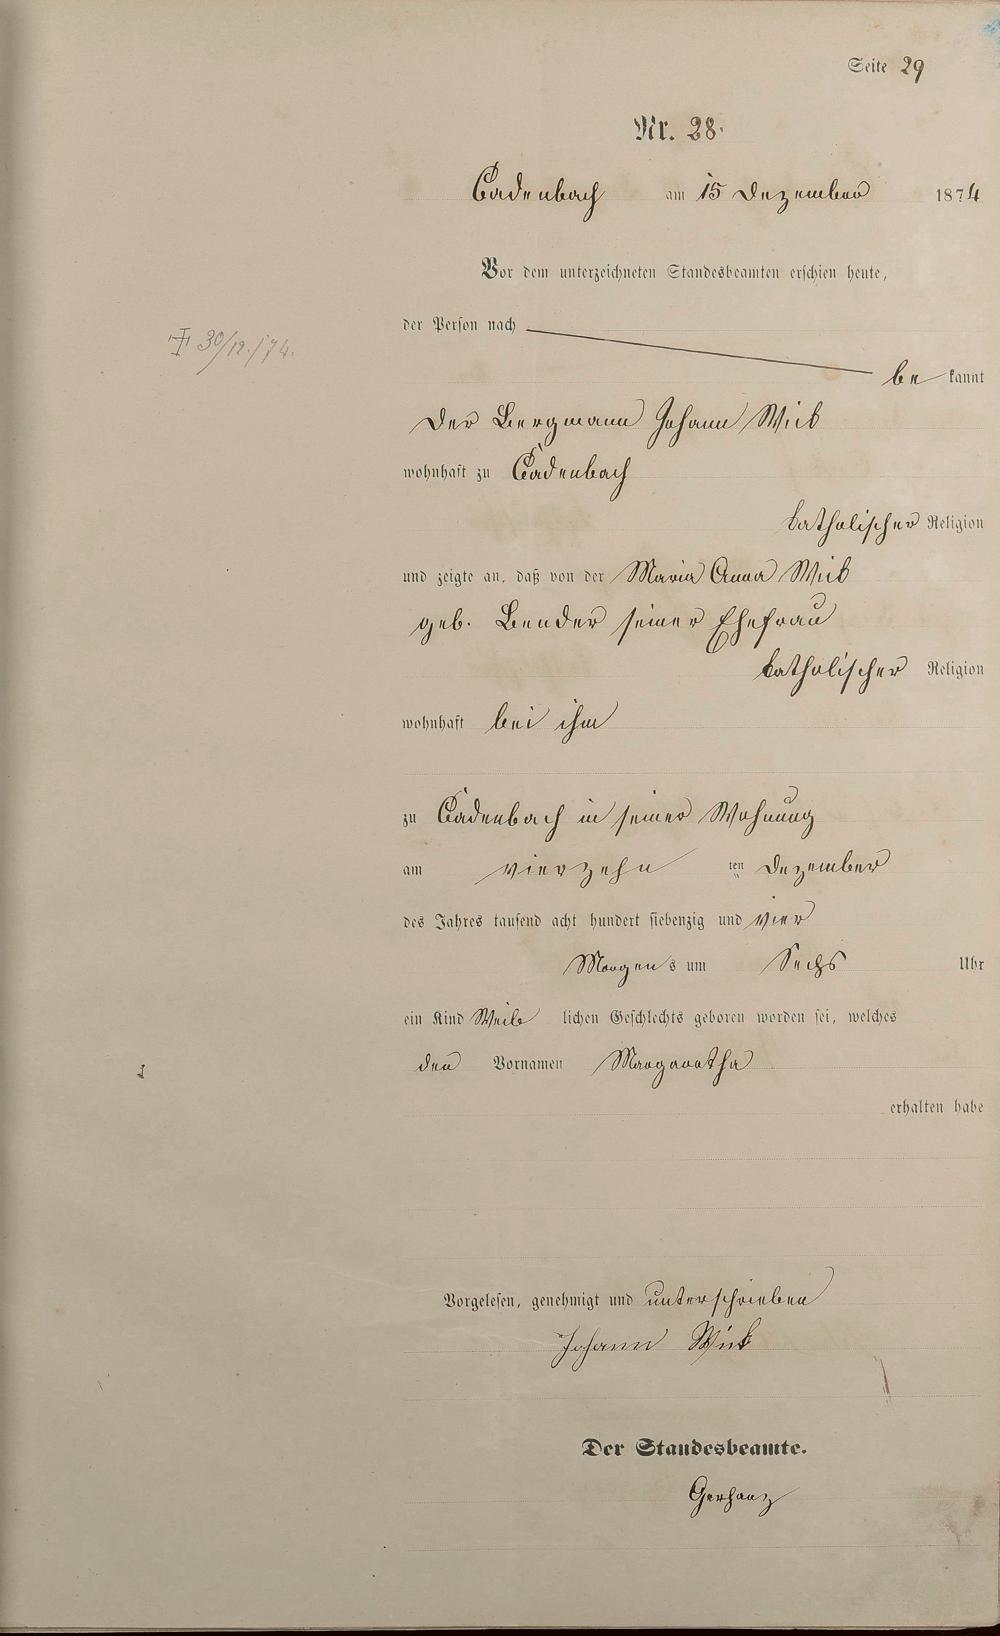 Seite 29
Nr. 28.
Cadenbach am 15 Dezember 1874
Vor dem unterzeichneten Standesbeamten erschien heute,
der Person nach
† 30/12./74.
be kannt
Der Bergmann Johann Wick
wohnhaft zu Cadenbach
katholischer Religion
und zeigte an, daß von der Maria Anna Wick
geb. Bender seiner Ehefrau
katholischer Religion
wohnhaft bei ihm
zu Cadenbach in seiner Wohnung
am vierzehn ten Dezember
des Jahres tausend acht hundert siebenzig und vier
Morgens um Sechs Uhr
ein Kind Weib lichen Geschlechts geboren worden sei, welches
den Vornamen Margaretha
erhalten habe
Vorgelesen, genehmigt und unterschrieben
Johann Wick
Der Standesbeamte.
Gerharz